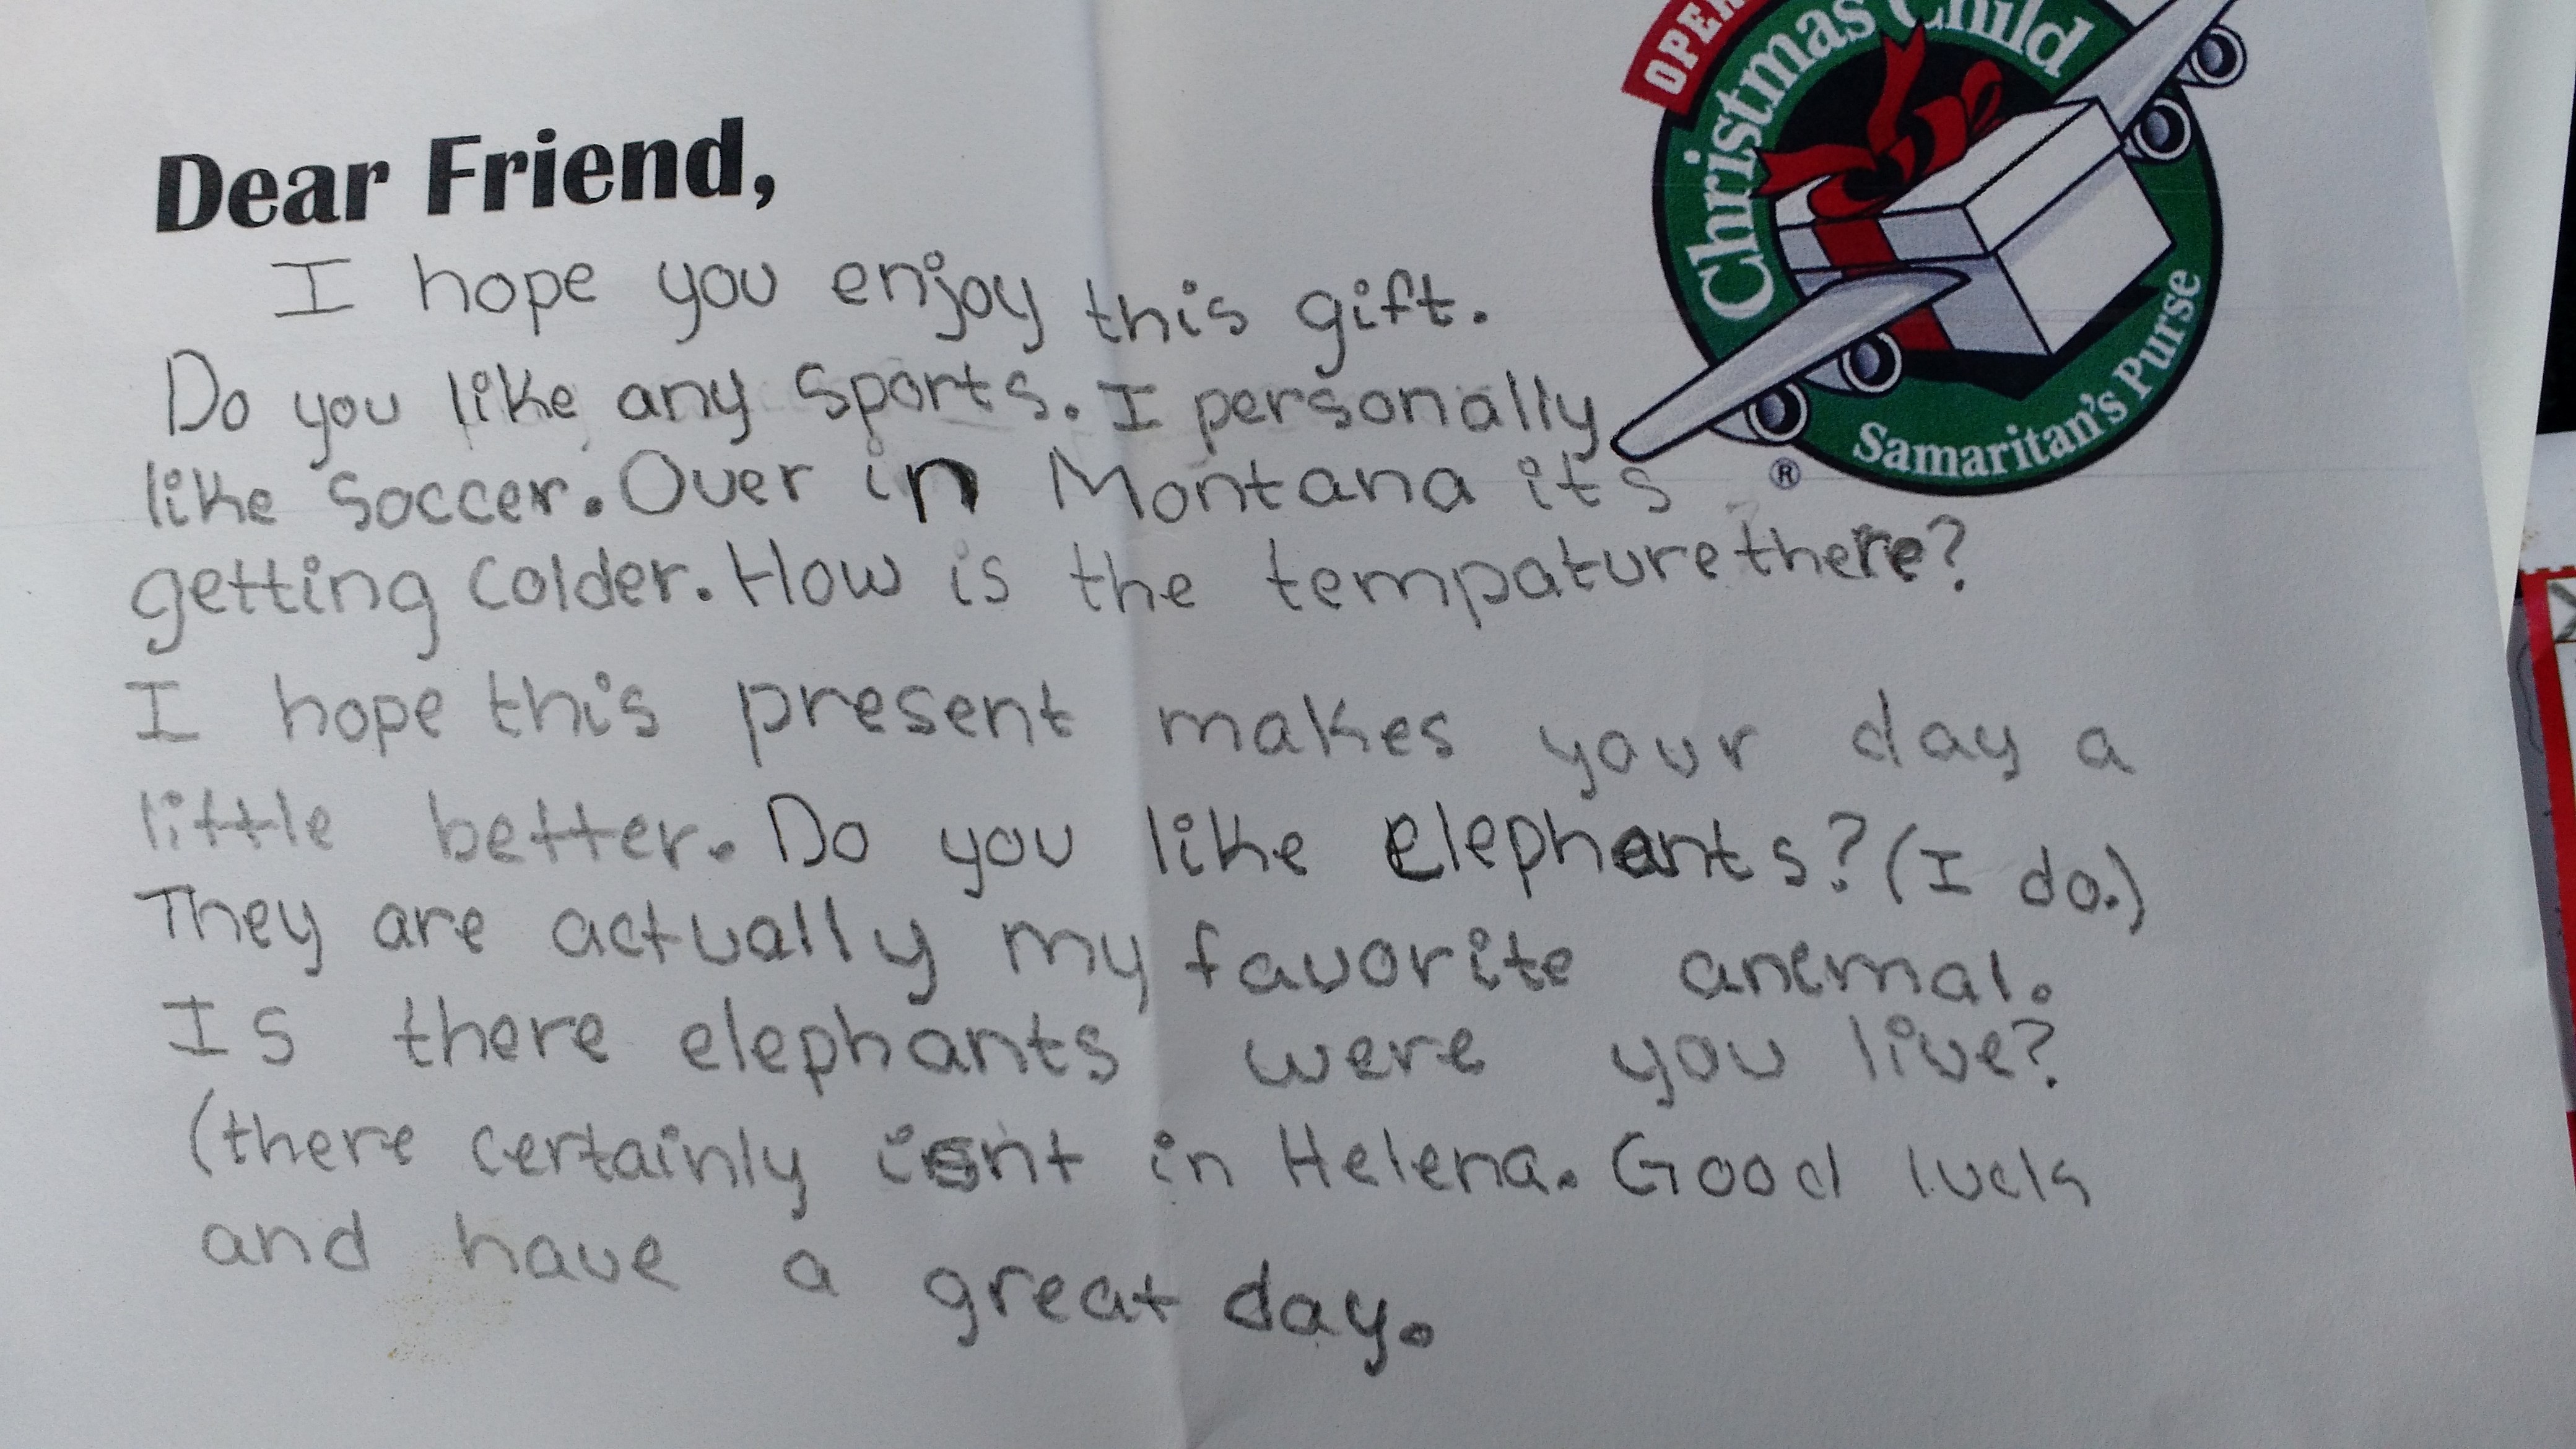 OPE
Christmas Child
Samaritan's Purse
®
Dear Friend,
I hope you enjoy this gift.
Do you like any sports. I personally
like soccer. Over in Montana it's
getting colder. How is the tempature there?
I hope this present makes your day a
little better. Do you like elephants? (I do.)
They are actually my favorite animal.
Is there elephants were you live?
(there certainly isnt in Helena. Good luck
and have a great day.